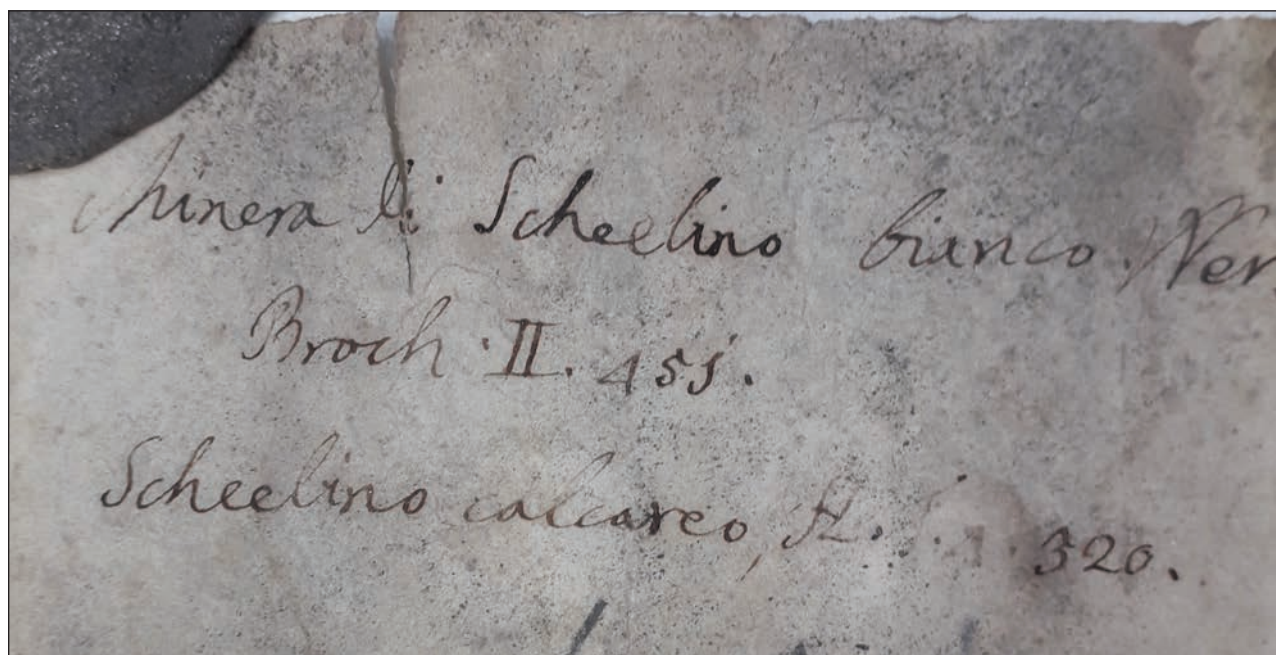 Minera di Scheelino bianco. Wer
Broch. II. 455.
Scheelino calcareo, H. 320.